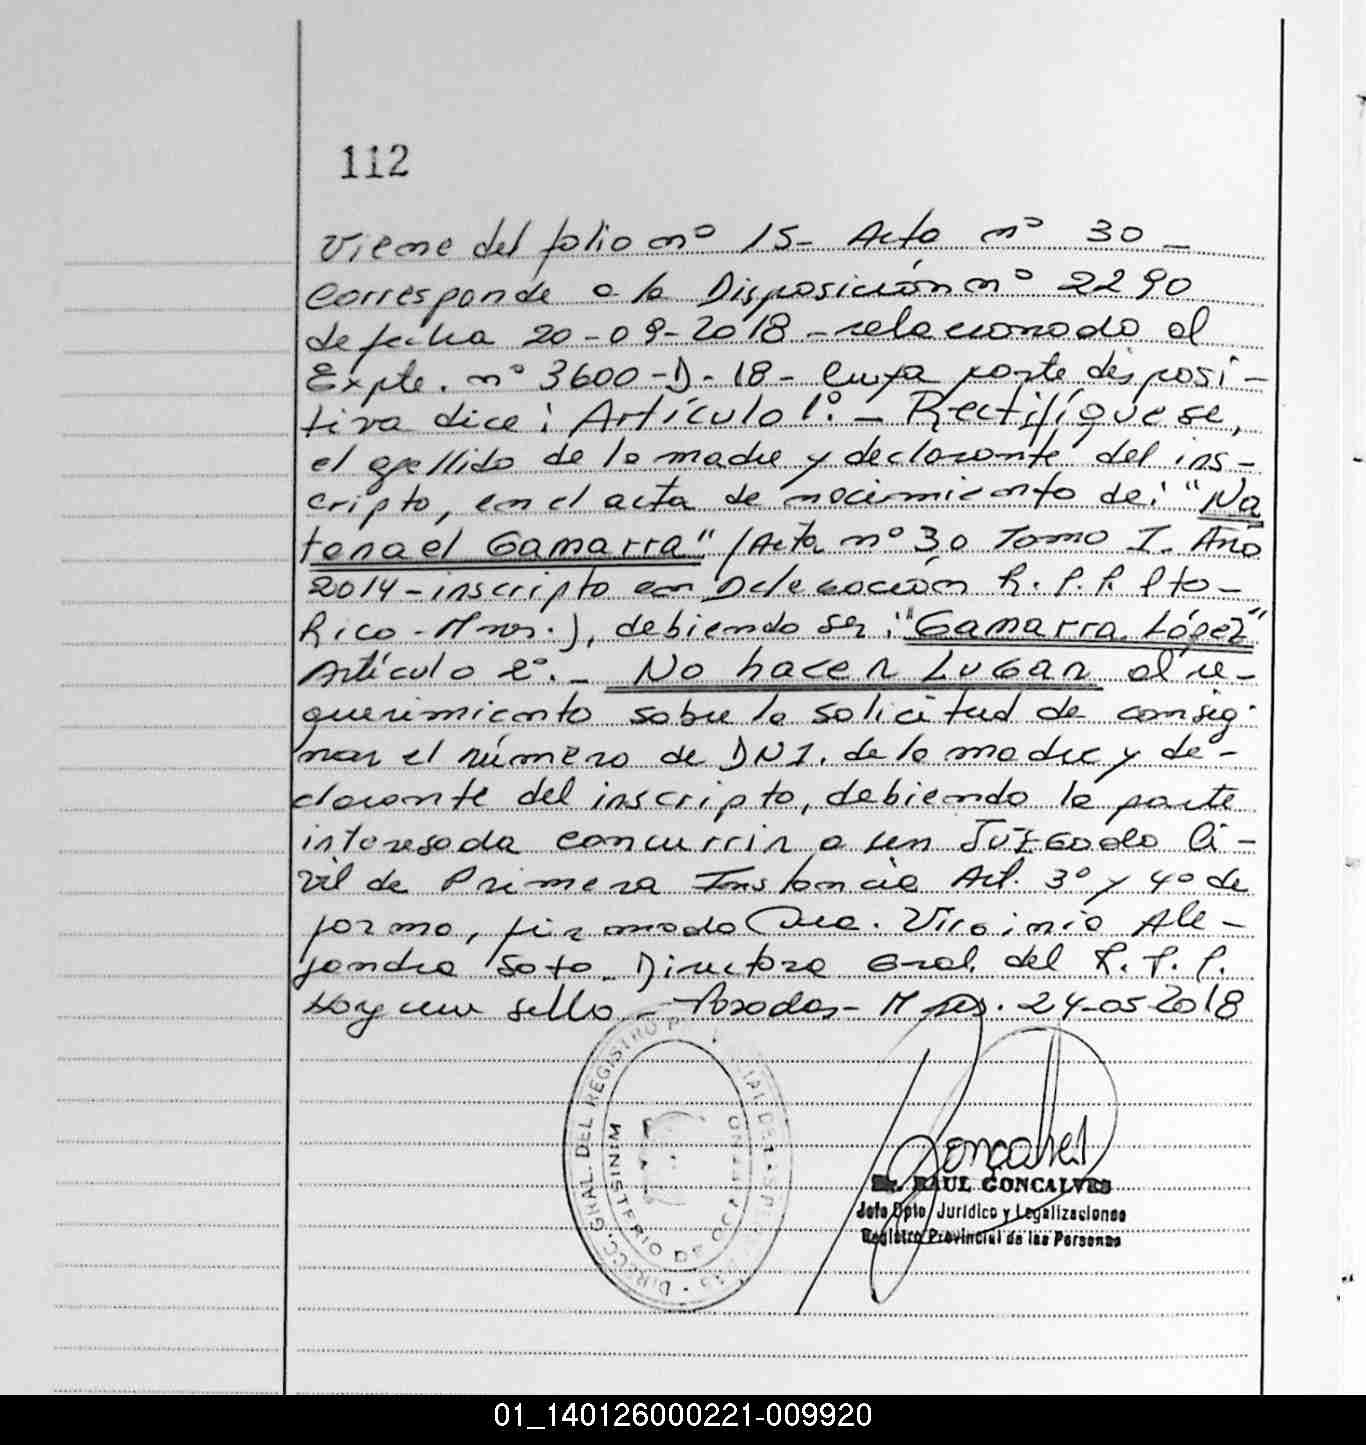 112
Viene del folio nº 15- Acta nº 30 -
Corresponde a la Disposición nº 2290
de fecha 20-09-2018 - relacionado al
Expte. nº 3600-D-18- Cuya parte disposi-
tiva dice: Artículo 1º.- Rectifíquese,
el apellido de la madre y declarante del ins-
cripto, en el acta de nacimiento de: "Na
tanael Gamarra" (Acta nº 30 Tomo I. Año
2014-inscripto en Delegación R.P.P. Pto-
Rico-Mnes.), debiendo ser: "Gamarra López"
Artículo 2º.- No hacer Lugar al re-
querimiento sobre la solicitud de consig-
nar el número de DNI. de la madre y de-
clarante del inscripto, debiendo la parte
interesada concurrir a un Juzgado Ci-
vil de Primera Instancia Art. 3º y 4º de
forma, firmado Dra. Virginia Ale-
jandra Soto. Directora Gral. del R.P.P.
Hay un sello - Posadas- Mnes. 24-05-2018
DIRECC. GRAL. DEL REGISTRO
MINISTERIO DE
Goncalves
RAUL GONCALVES
Jefe Dpto. Jurídico y Legalizaciones
Registro Provincial de las Personas
01_140126000221-009920